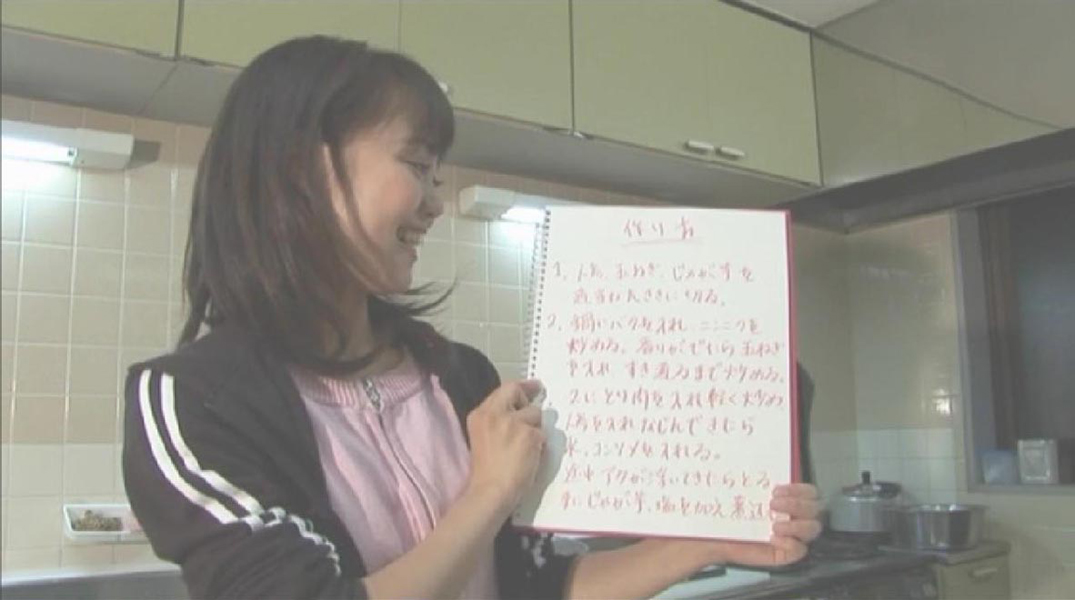 作り方
1. 人参、玉ねぎ、じゃが芋を
適当な大きさに切る。
2. 鍋にバターを入れ ニンニクを
炒める。香りがでたら 玉ねぎ
を入れ すき通るまで炒める。
2にとり肉を入れ軽く炒め
人参を入れなじんできたら
水、コンソメを入れる。
途中アクが浮いてきたらとる
にじゃが芋、塩を加え 煮込